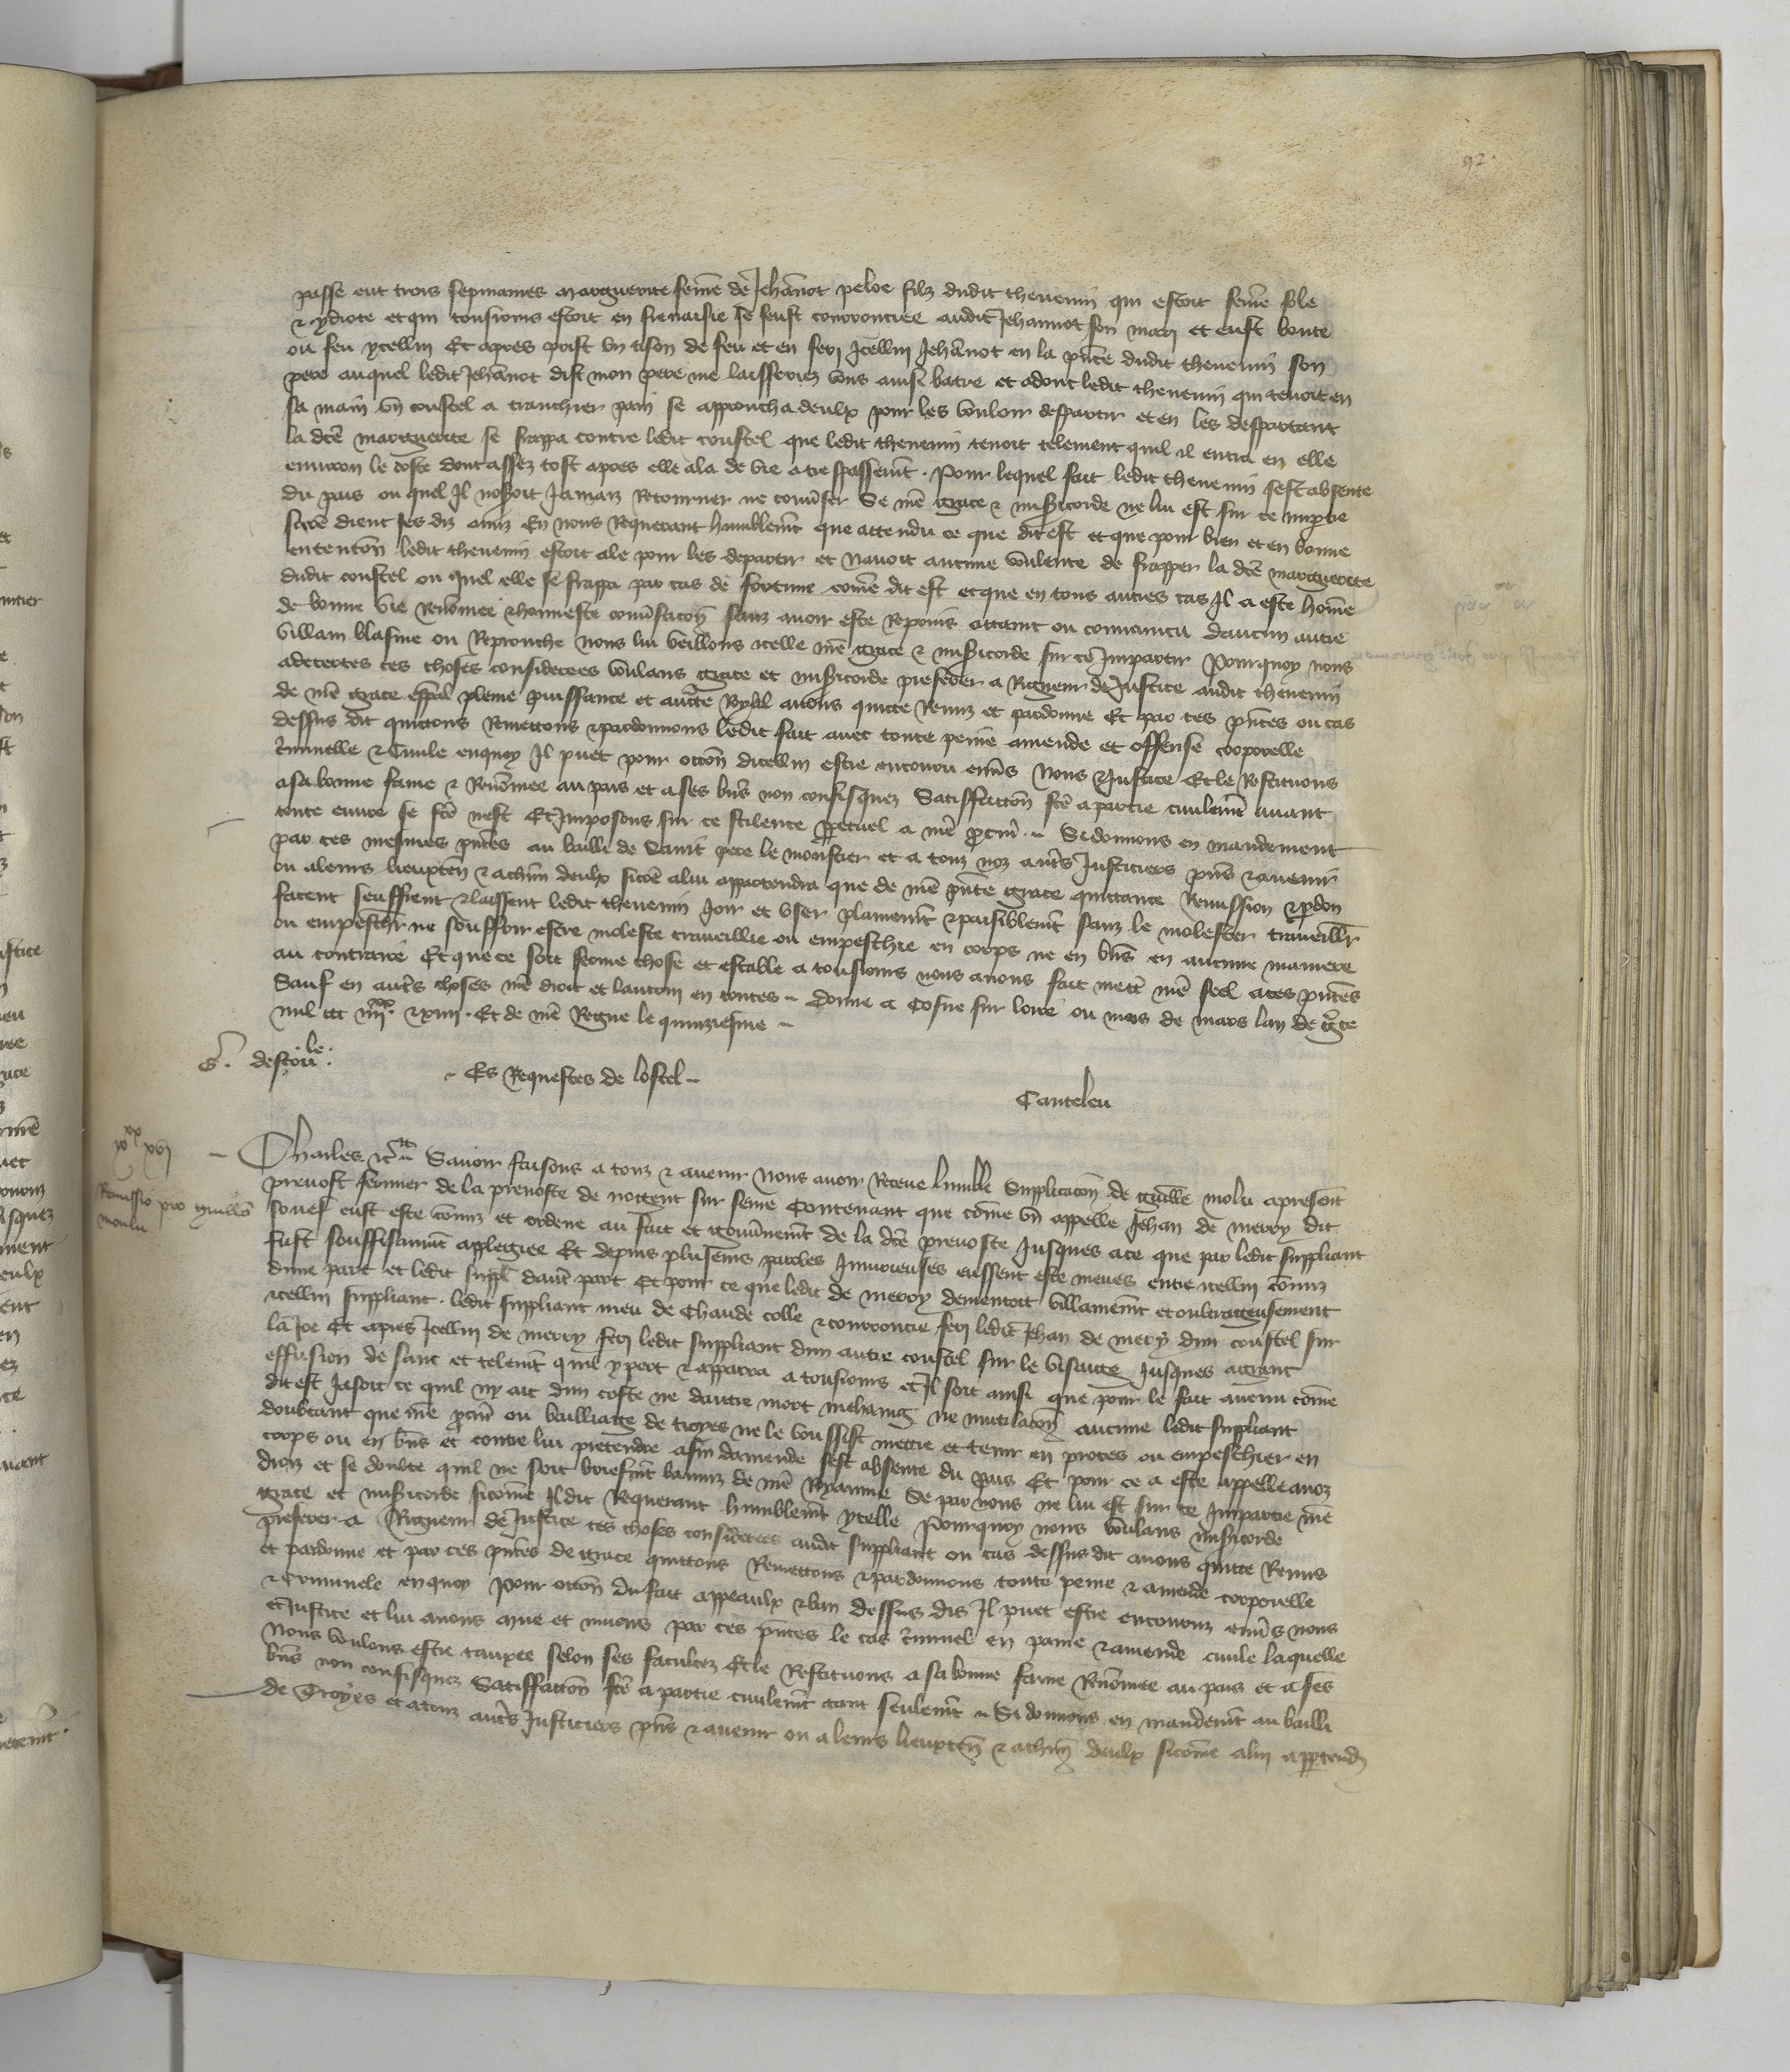 92.
passe eut trois sepmaines marguerite feme de Jehannot peloe filz dudit thevenin qui estoit feme fole
& ydiote et qui tousiours estoit en frenaisie se feust courroucee audit Jehannot son mary et eust boute
ou feu ycellui Et apres prist un tison de feu et en feri Icellui Jehannot en la pnce dudit thevenin son
pere auquel ledit Jehannot dist mon pere me laisserez vous ainsi batre et adont ledit thevenin qui tenoit en
sa main un coustel a tranchier pain se approucha deulx pour les vouloir despartir et en les despartant
la dce marguerite se frappa contre ledit coustel que ledit thevenin tenoit telement quil il entra en elle
environ le coste dont assez tost apres elle ala de vie a trespassemt. Pour lequel fait ledit thevenin sest absente
du pais ou quel Il nosoit Jamais Retourner ne conuser Se nre grace & misericorde ne lui est sur ce impartie
sicoe dient ses diz amis En nous Requerant humblemt que attendu ce que dit est et que pour bien et en bonne
entencon ledit thevenin estoit ale pour les departir et navoit aucune voulente de frapper la dce marguerite
dudit coustel ou quel elle se frappa par cas de fortune come dit est et que en tous autres cas Il a este home
de bonne vie Renomee & honneste conusacon sanz avoir este Repris attaint ou convaincu daucun autre
villain blasme ou Reprouche nous lui veillons icelle nre grace & misericorde sur ce Impartir Pourquoy nous
adecertes ces choses considerees voulans grace et misericorde preferer a Rigueur de Justice audit thevenin
de nre grace espal pleine puissance et aucte Royal avons quitte Remiz et pardonne Et par ces pntes ou cas
dessus dit quittons Remettons & pardonnons ledit fait avec toute peine amende et offense corporelle
criminelle & Civile enquoy Il puet pour occon dicellui estre encouru envs Nous & Justice Et le Restituons
a sa bonne fame & Renomee au pais et a ses bns non confisquez Satisfaccon fce a partie civilemt avant
toute euvre se fce nest Et Imposons sur ce silence ppetuel a nre pcur. Si donnons en mandement
par ces mesmes pntes au bailli de Saint pere le moustier et a touz noz autrs Justiciers pns & avenir
ou a leurs lieuxten & a chun deulx sicoe a lui appartendra que de nre pnte grace quittance Remission & pdon
facent seuffrent & laissent ledit thevenin Joir et user plainemt & paisiblemt sanz le molester traveillr
ou empeschr ne souffrir estre moleste traveillie ou empeschie en corps ne en bns en aucune maniere
au contraire Et que ce soit ferme chose et estable a tousiours nous avons fait mectr nre seel a ces pntes
Sauf en autrs choses nre droit et lautrui en toutes Donne a Cosne sur loire ou mois de mars lan de grce
mil ccc iiii xx & xiiii. Et de nre Regne le quinziesme
G. destoule.
Es Requestes de lostel
Canteleu
iiii xx xvi
Remissio pro Guillo
moulu
Charles &c Savoir faisons a touz & avenir Nous avoir Receue lumble Supplicacon de guille molu apresent
prevost fermier de la prevoste de nogent sur seine Contenant que come un appelle Jehan de merry dit
souef eust este comis et ordene au fait et gouvnemt de la dce prevoste Jusques ace que par ledit suppliant
fust souffisaumt applegiee Et depuis plusrs paroles Iniurieuses eussent este meues entre icellui comis
dune part et ledit suppl dautr part Et pour ce que ledit de merry dementoit villainemt et oultrageusement
icellui suppliant. ledit suppliant meu de Chaude colle & courroucie feri ledit Jehan de merry dun coustel sur
la Joe Et apres Icellui de merry feri ledit suppliant dun autre coustel sur le visaige Jusques a grant
effusion de sanc et telemt quil y pert & apparra a tousiours et Il soit ainsi que pour le fait avenu come
dit est Jasoit ce quil ny ait dun coste ne dautre mort mehaing ne mutilacon aucune ledit suppliant
doubtant que nre pcur ou bailliage de troyes ne le voussist mettre et tenir en proces ou empeschier en
corps ou en bns et contre lui pretendre afin damende sest absente du pais Et pour ce a este appelle a noz
droiz et se doubte quil ne soit briefmt banniz de nre Royaume Se par nous ne lui est sur ce Impartie nre
grace et misericorde sicome Il dit Requerant humblemt ycelle Pourquoy nous voulans misericorde
preferer a Rigueur de Justice ces choses considerees audit suppliant ou cas dessus dit avons quitte Remis
et pardonne et par ces pntes de grace quittons Remettons & pardonnons toute peine & amende corporelle
& Criminele enquoy Pour occon du fait appeaulx & ban dessus dis Il puet estre encouruz envrs nous
et Justice et lui avons mue et muons par ces pntes le cas criminel en paine & amende civile laquelle
Nous voulons estre tauxee selon ses facultez Et le Restituons a sa bonne fame Renomee au pais et a ses
bns non confisquez Satisfaccon fce a partie civilemt tant seulemt Si donnons en mandemt au bailli
de Troyes et a touz autrs Justiciers pns & avenir ou a leurs lieuxten & a chun deulx sicome a lui appartendr